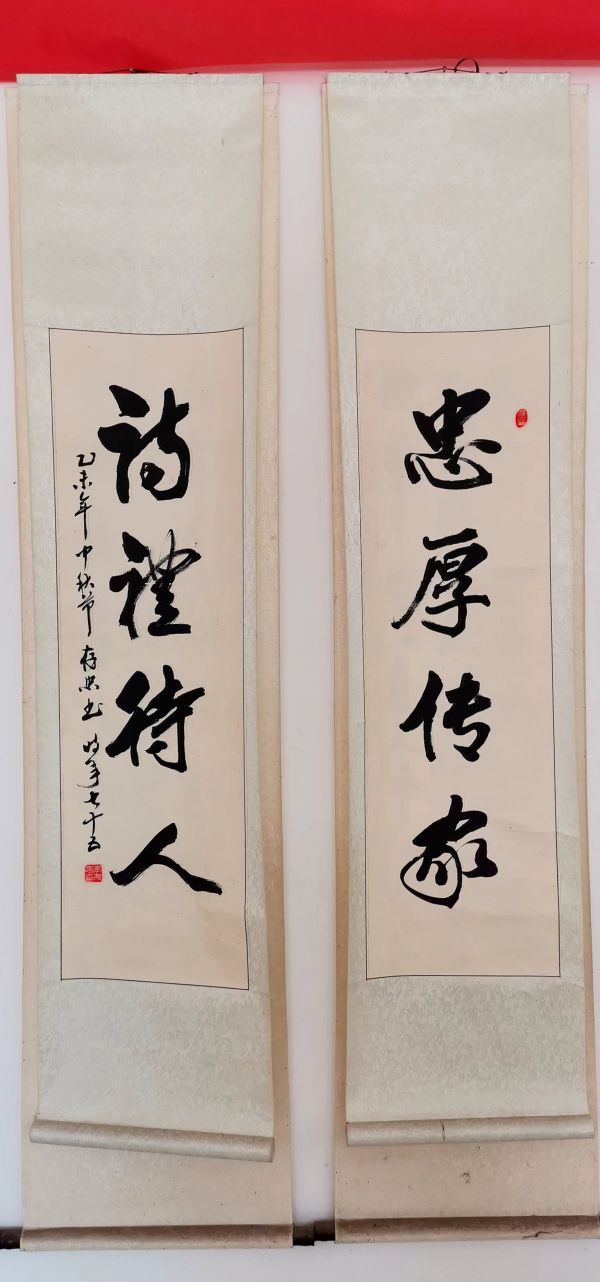 忠厚传家
詩禮待人
乙未年中秋节存忠书时年七十五